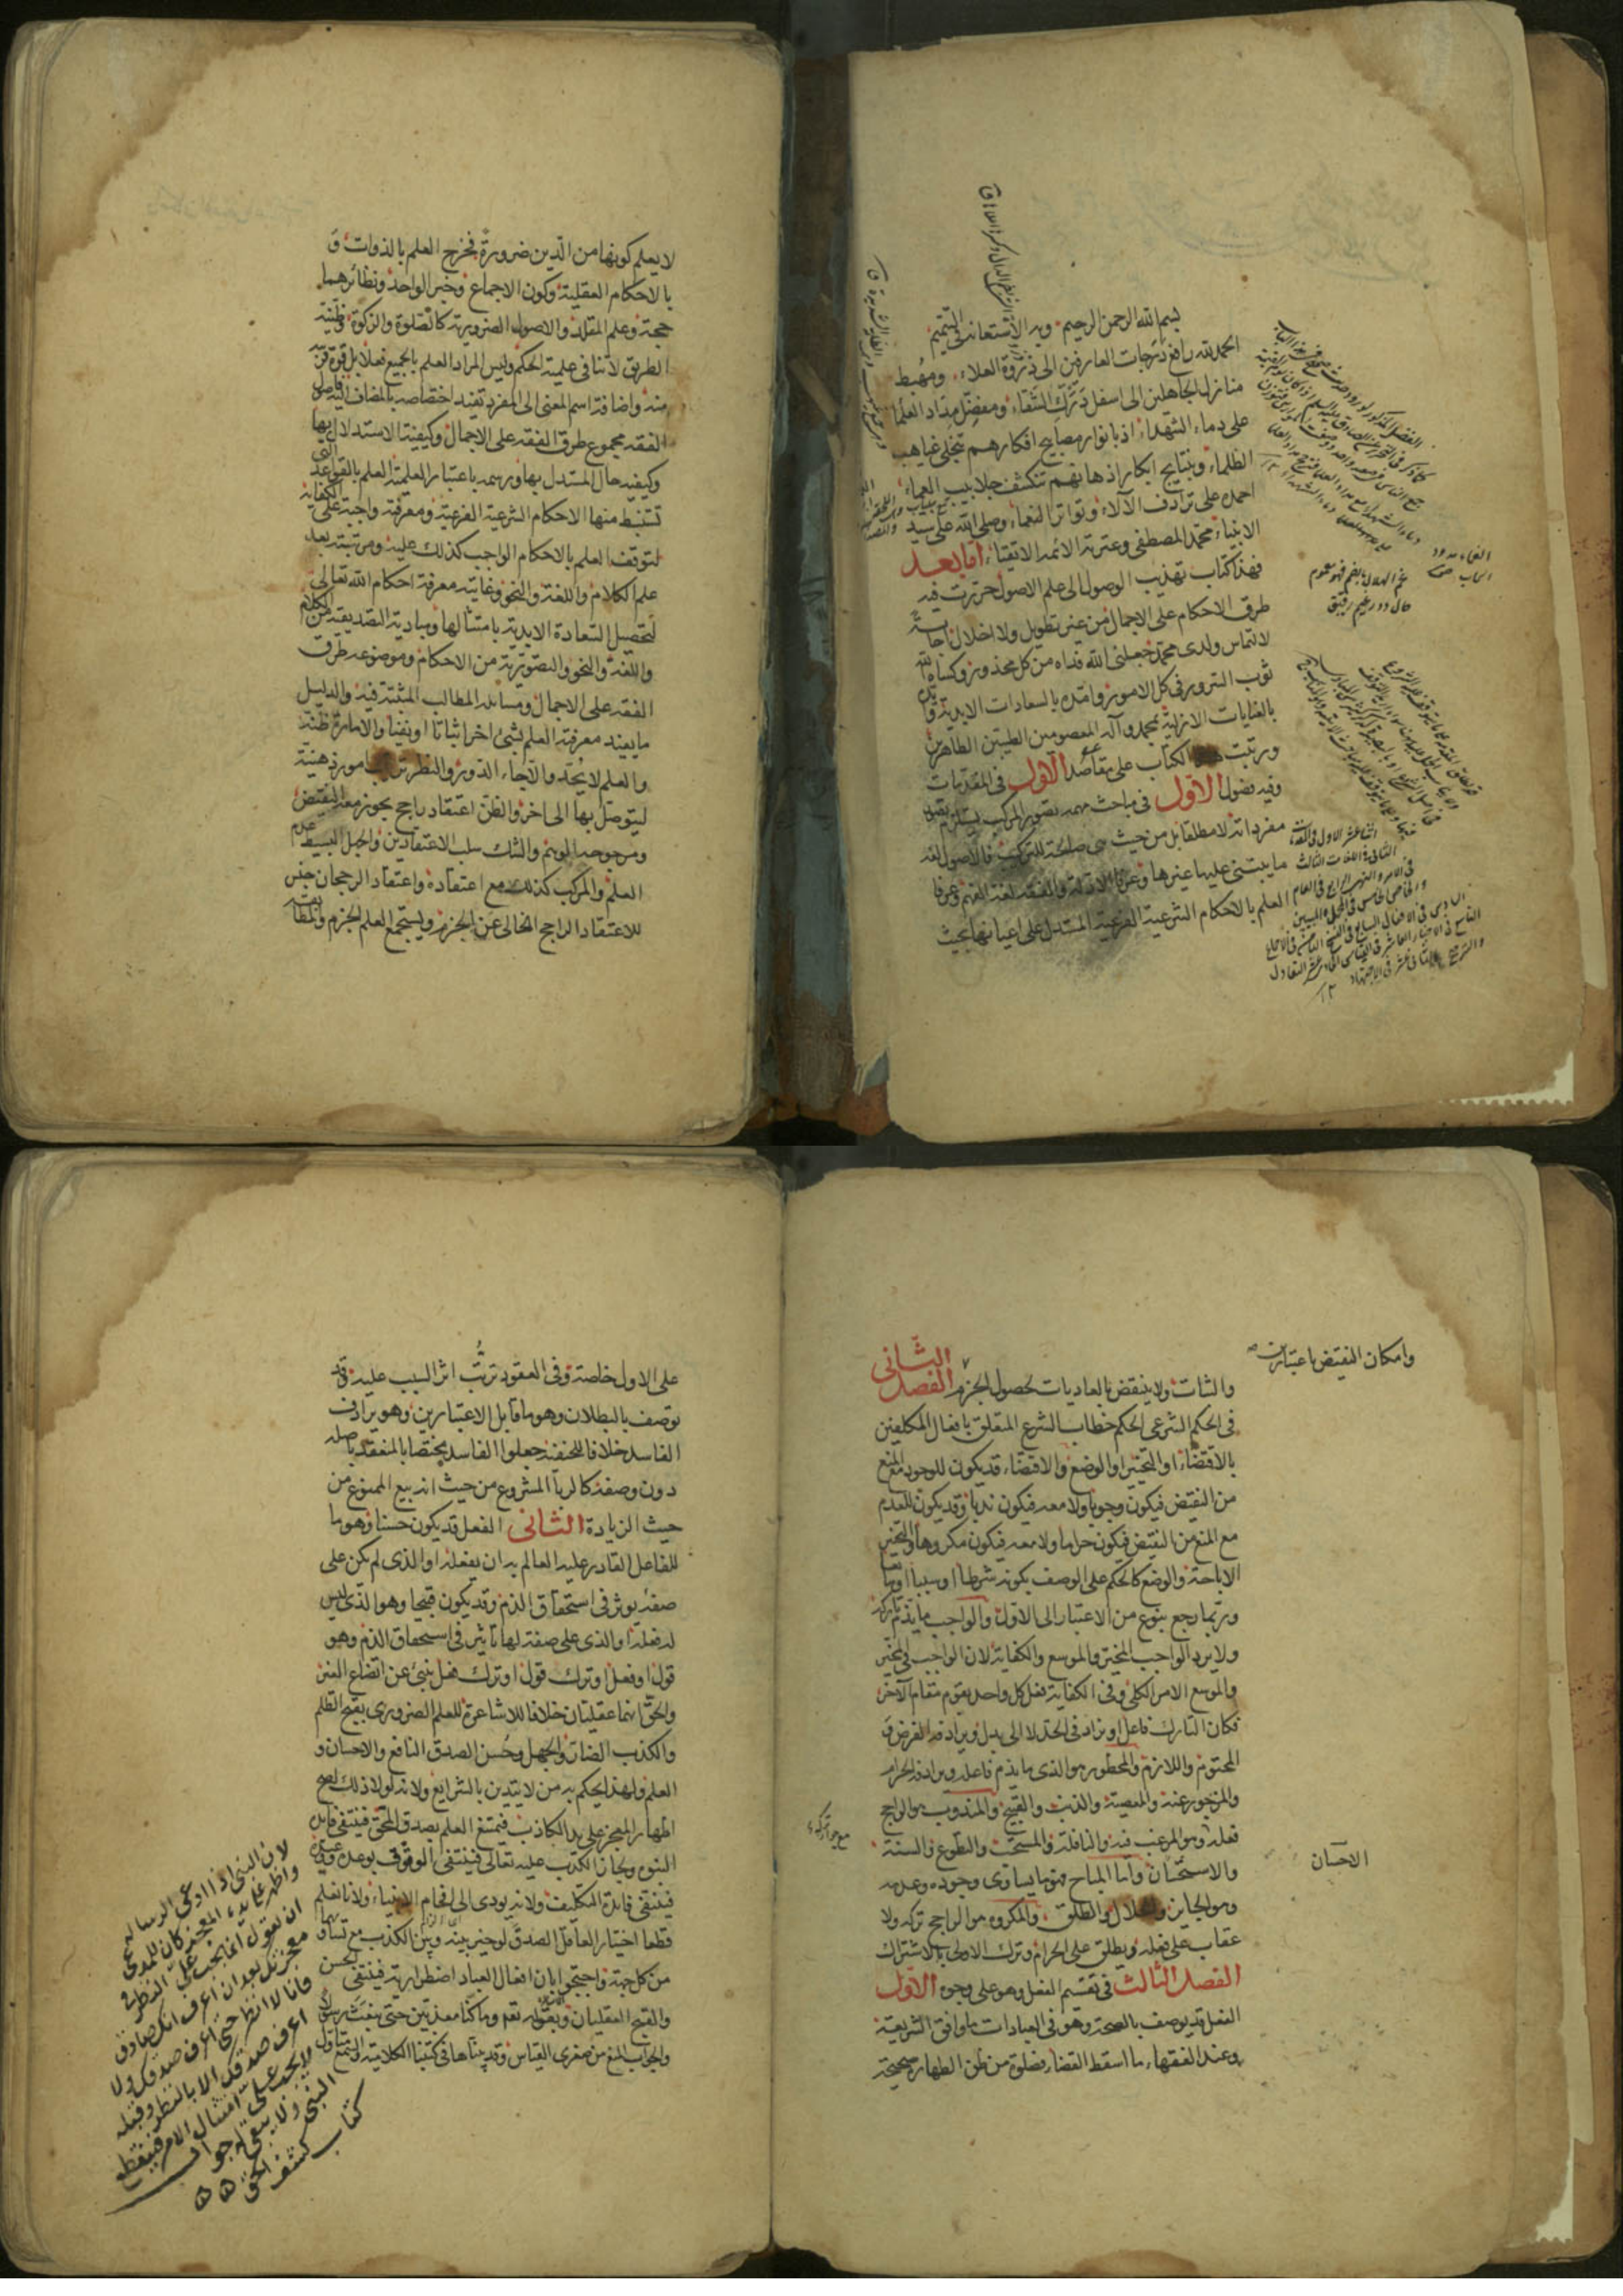 بسم الله الرحمن الرحيم وبه الاستعانة في التتميم
الحمد لله رافع درجات العارفين الى ذروة العلاء ومهبط
منازل الجاهلين الى اسفل درك الشقاء ومفضل مداد العلماء
على دماء الشهداء اذ بانوار مصابيح افكارهم تنجلى غياهب
الظلماء وبنتايج ابكار اذهانهم تنكشف جلابيب العماء
احمده على ترادف الآلاء وتواتر النعماء وصلى الله على سيد
الانبياء محمد المصطفى وعترته الائمه الاتقياء اما بعد
فهذا كتاب تهذيب الوصول الى علم الاصول حررت فيه
طرق الاحكام على الاجمال من غير تطويل ولا اخلال اجابة
لالتماس ولدى محمد جعلنى الله فداه من كل محذور وكساه الله
ثوب السرور فى كل الامور وامده بالسعادات الابدية وايده
بالعنايات الازلية بمحمد وآله المعصومين الطيبين الطاهرين
ورتبت الكتاب على مقاصد الاول فى المقدمات
وفيه فصول الاول فى مباحث مهمه تصور المركب يستلزم تصور
مفرداته لا مطلقا بل من حيث هى صالحة للتركيب فالاصول لغة
ما يبتنى عليها غيرها وعرفا الادلة والفقه لغة الفهم وعرفا
العلم بالاحكام الشرعية الفرعية المستدل على اعيانها بحيث
لا يعلم كونها من الدين ضرورة فخرج العلم بالذوات و
بالاحكام العقلية وكون الاجماع وخبر الواحد ونظائرهما
حجة وعلم المقلد والاصول الضرورية كالصلوة والزكوة وظنية
الطريق لا تنافى علمية الحكم وليس المراد العلم بالجميع فعلا بل قوة قريبة
منه واضافة اسم المعنى الى المفرد تفيد اختصاصه بالمضاف اليه فاصول
الفقه مجموع طرق الفقه على الاجمال وكيفية الاستدلال بها
وكيفية حال المستدل بها ورسمه باعتبار العلمية العلم بالقواعد التى
تستنبط منها الاحكام الشرعية الفرعية ومعرفته واجبة على الكفاية
لتوقف العلم بالاحكام الواجب كذلك عليه ومرتبته بعد
علم الكلام واللغة والنحو وغايته معرفة احكام الله تعالى
لتحصيل السعادة الابدية بامتثالها ومباديه التصديقية من الكلام
واللغة والنحو والتصورية من الاحكام وموضوعه طرق
الفقه على الاجمال ومسائله المطالب المثبتة فيه والدليل
ما يفيد معرفته العلم بشئ اخر اثباتا او نفيا والامارة ظنه
والعلم لا يحد والا جاء الدور والنظر ترتيب امور ذهنية
ليتوصل بها الى اخر والظن اعتقاد راجح يجوز معه النقيض
ومرجوحه الوهم والشك سلب الاعتقادين والجهل البسيط عدم
العلم والمركب كذلك مع اعتقاده واعتقاد الرجحان جنس
للاعتقاد الراجح الخالى عن الجزم ويستجمع العلم الجزم والمطابقة
وامكان النقيض باعتبارين
والثبات ولا ينقض بالعاديات لحصول الجزم الفصل الثانى
فى الحكم الشرعى الحكم خطاب الشرع المتعلق بافعال المكلفين
بالاقتضاء او التخيير او الوضع والاقتضاء قد يكون للوجود مع المنع
من النقيض فيكون وجوبا ولا معه فيكون ندبا وقد يكون للعدم
مع المنع من النقيض فيكون حراما ولا معه فيكون مكروها والتخيير
الاباحة والوضع كالحكم على الوصف بكونه شرطا او سببا او مانعا
وربما رجع بنوع من الاعتبار الى الاول والواجب ما يذم تاركه
ولا يرد الواجب المخير والموسع والكفاية لان الواجب فى المخير
والموسع الامر الكلى وفى الكفاية فعل كل واحد يقوم مقام الآخر
فكان التارك فاعل او نزاد فى الحد لا الى بدل ويرادفه الفرض و
المحتوم واللازم والمحظور هو الذى ما يذم فاعله ويرادفه الحرام
والمزجور عنه والمعصية والذنب والقبيح والمندوب هو الراجح
فعله وهو المرغب فيه والنافلة والمستحب والتطوع والسنة
الاحسان
والاستحسان واما المباح فهو ما يساوى وجوده وعدمه
وهو الجايز والحلال والطلق والمكروه هو الراجح تركه ولا
عقاب على فعله ويطلق على الحرام وترك الاولى بالاشتراك
الفصل الثالث فى تقسيم الفعل وهو على وجوه الاول
الفعل قد يوصف بالصحة وهو فى العبادات ما وافق الشريعة
وعند الفقهاء ما اسقط القضاء فصلوة من ظن الطهارة صحيحة
على الاول خاصة وفى العقود ترتب اثر السبب عليه وقد
يوصف بالبطلان وهو ما قابل الاعتبارين وهو يرادف
الفاسد خلافا للحنفية جعلوا الفاسد مختصا بالمنعقد باصله
دون وصفه كالربا المشروع من حيث انه بيع الممنوع من
حيث الزيادة الثانى الفعل قد يكون حسنا وهو ما
للفاعل القادر عليه العالم به ان يفعله او الذى لم يكن على
صفة يوثر فى استحقاق الذم وقد يكون قبيحا وهو الذى ليس
له فعله او الذى على صفة لها تاثير فى استحقاق الذم وهو
قول او فعل او ترك قول او ترك فعل ينبئ عن اتضاع الغير
والحق انهما عقليان خلافا للاشاعرة للعلم الضرورى بقبح الظلم
والكذب الضار والجهل وحسن الصدق النافع والاحسان و
العلم ولهذا يحكم به من لا يتدين بالشرايع ولانه لولا ذلك لصح
اظهار المعجز على يد الكاذب فيمتنع العلم بصدق المحق فينتفى فايدة
النبوة ولجاز الكذب عليه تعالى فينتفى الوثوق بوعده ووعيده
فينتفى فايدة التكليف ولانه يودى الى افحام الانبياء ولانا نعلم
قطعا اختيار العاقل الصدق لو خير بينه وبين الكذب مع تساويهما
من كل جهة واحتجوا بان افعال العباد اضطرارية فينتفى الحسن
والقبح العقليان وبقوله تعه وما كنا معذبين حتى نبعث رسولا
والجواب المنع من صغرى القياس وقد بيناها فى كتبنا الكلامية والسمع متاول
لان النبى اذا ادعى الرسالة
واظهر المعجز كان للمدعى
ان يقول انما يجب على النظر فى
معجزتك بعد ان اعرف انك صادق
فانا لا انظر حتى اعرف صدقك ولا
اعرف صدقك الا بالنظر وقبله
لا يجب على امتثال الامر فينقطع
النبى ولا يبقى له جواب
كتاب كشف الحق